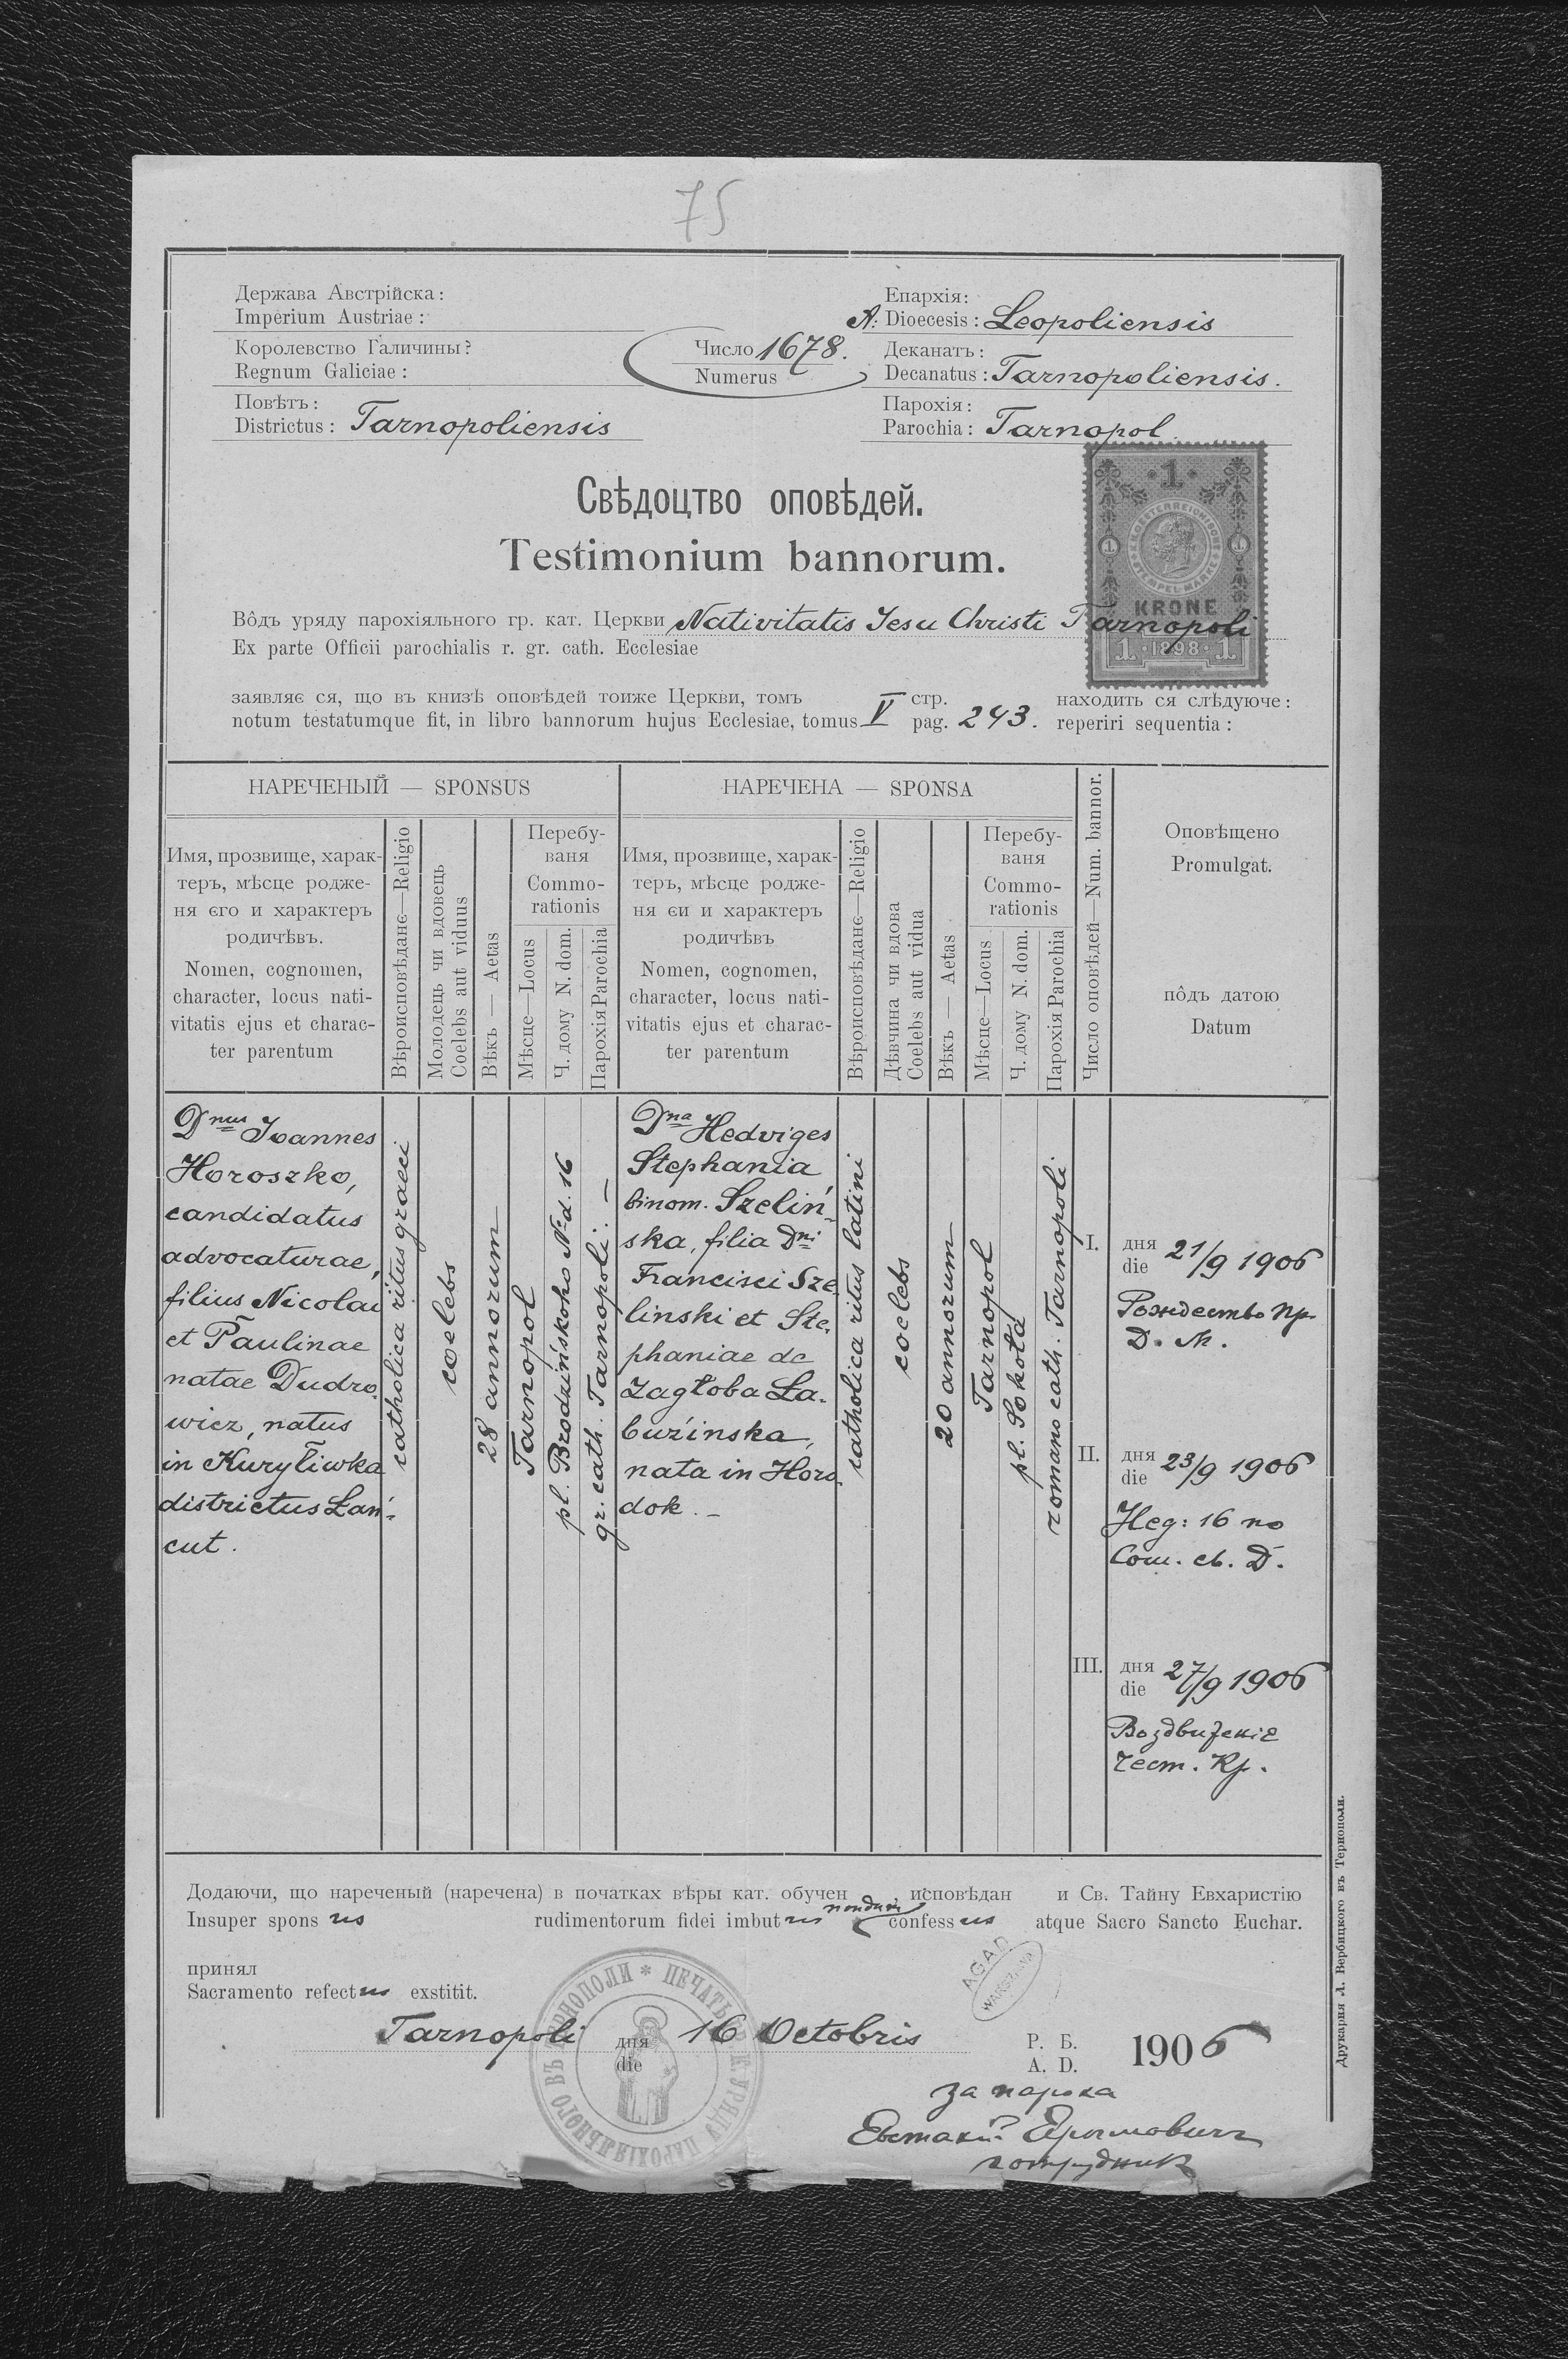 75
Держава Австрійска:
Imperium Austriae:
Королевство Галичины?
Regnum Galiciae:
Повѣтъ:
Districtus: Tarnopoliensis
Число 1678.
Numerus
Епархія:
A. Dioecesis: Leopoliensis
Деканатъ:
Decanatus: Tarnopoliensis.
Парохія:
Parochia: Tarnopol.
Свѣдоцтво оповѣдей.
Testimonium bannorum.
1
KRONE
1 · 1898 · 1
Вôдъ уряду парохіяльного гр. кат. Церкви Nativitatis Jesu Christi Tarnopoli
Ex parte Officii parochialis r. gr. cath. Ecclesiae
заявляє ся, що въ книзѣ оповѣдей тоиже Церкви, томъ V стр. находить ся слѣдуюче:
notum testatumque fit, in libro bannorum hujus Ecclesiae, tomus pag. 243. reperiri sequentia:
НАРЕЧЕНЫЙ — SPONSUS
НАРЕЧЕНА — SPONSA
Имя, прозвище, харак-
теръ, мѣсце родже-
ня єго и характеръ
родичѣвъ.
Nomen, cognomen,
character, locus nati-
vitatis ejus et charac-
ter parentum
Вѣроисповѣданє—Religio
Молодець чи вдовець
Coelebs aut viduus
Вѣкъ — Aetas
Перебу-
ваня
Commo-
rationis
Мѣсце—Locus
Ч. дому N. dom.
Парохія Parochia
Имя, прозвище, харак-
теръ, мѣсце родже-
ня єи и характеръ
родичѣвъ
Nomen, cognomen,
character, locus nati-
vitatis ejus et charac-
ter parentum
Вѣроисповѣданє—Religio
Дѣвчина чи вдова
Coelebs aut vidua
Вѣкъ — Aetas
Перебу-
ваня
Commo-
rationis
Мѣсце—Locus
Ч. дому N. dom.
Парохія Parochia
Число оповѣдей—Num. bannor.
Оповѣщено
Promulgat.
пôдъ датою
Datum
Dnus Joannes
Horoszko,
candidatus
advocaturae,
filius Nicolai
et Paulinae
natae Dudro-
wicz, natus
in Kuryliwka
districtus Łań-
cut.
catholica ritus graeci
coelebs
28 annorum
Tarnopol
pl. Brodzińskoho N. d. 16
gr. cath. Tarnopoli. —
Dna Hedviges
Stephania
binom. Szeliń-
ska, filia Dni
Francisci Sze-
linski et Ste-
phaniae de
Zagłoba Ła-
buzinska,
nata in Horo-
dok. –
catholica ritus latini
coelebs
20 annorum
Tarnopol
pl. Sokoła
romano cath. Tarnopoli
I. дня
die 21/9 1906
Рождество Пр.
Д. М.
II. дня
die 23/9 1906
Нед: 16 по
Сош. св. Д.
III. дня
die 27/9 1906
Воздвиженіе
чест. Кр.
Додаючи, що нареченый (наречена) в початках вѣры кат. обучен исповѣдан и Св. Тайну Евхаристію
Insuper spons us rudimentorum fidei imbut us nondum confess us atque Sacro Sancto Euchar.
принял
Sacramento refect us exstitit.
AGAD
WARSZAWA
Tarnopoli дня 16 Octobris Р. Б.
die A. D. 1906
за пароха
сотрудник
Друкарня Л. Вербицкого въ Тернополи.